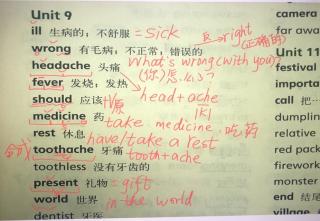 Unit 9
ill 生病的；不舒服 = sick
反 right (正确的)
wrong 有毛病；不正常；错误的
headache 头痛 What's wrong (with you)?
fever 发烧；发热 (你)怎么了
head + ache
should 应该
medicine 药 take medicine 吃药
rest 休息 have/take a rest
toothache 牙痛 tooth + ache
合成
toothless 没有牙齿的
present 礼物 = gift
world 世界 in the world
dentist 牙医
camera
far awa
Unit 11
festival
importa
call 把…
dumplin
relative
red pack
firework
monster
end 结尾
village